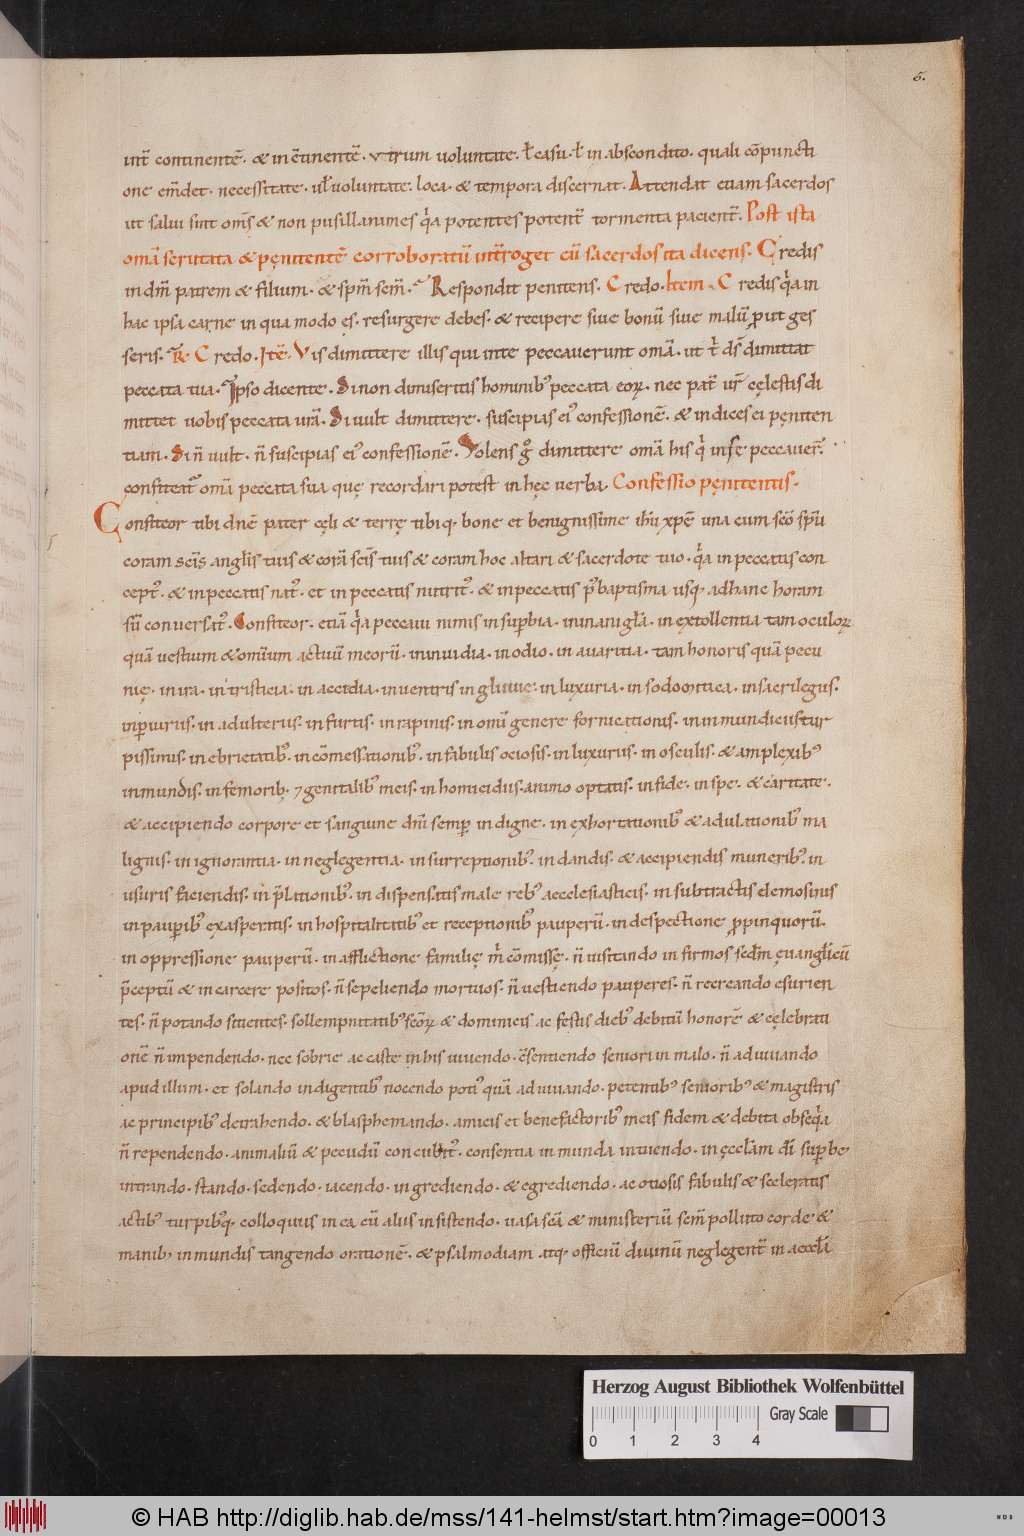 5.
int̄ continentē. & in c̄tinentē. utrum voluntate. ł casu. ł in abscondito. quali cōpuncti
one em̄det. necessitate. uł voluntate. loca. & tempora discernat. Attendat etiam sacerdos
ut salui sint om̄s & non pusillanimes qͥa potentes potent̄ tormenta pacient̄. Post ista
om̄a scrutata & pęnitentē corroboratū int̄roget eū sacerdos ita dicens. Credis
in dm̄ patrem & filium. & spm̄ scm̄. Respondit penitens. Credo. Item. Credis qͥa in
hac ipsa carne in qua modo ęs. resurgere debes. & recipere siue bonū siue malū prout ges
seris. R̄. Credo. Itē. Vis dimittere illis qui in te peccauerunt om̄a. ut tͥ ds̄ dimittat
peccata tua. Ipso dicente. Si non dimiseritis hominibꝰ peccata eoꝝ. nec pat̄ ur̄ cęlestis di
mittet uobis peccata ur̄a. Si uult dimittere. suscipias eiꝰ confessionē. & indices ei pęniten
tiam. Si n̄ uult. n̄ suscipias eiꝰ confessionē. Volens gͦ dimittere om̄a his qͥ in se peccauer̄.
confiteat᷑ om̄a peccata sua quę recordari potest in hęc uerba. Confessio pęnitentis.
Confiteor tibi dn̄e pater cęli & terrę tibiqꝫ bone et benignissime ih̄u xp̄e una cum sc̄o sp̄u
coram sc̄is anglis tuis & corā sc̄is tuis & coram hoc altari & sacerdote tuo. qͥa in peccatis con
ceptꝰ. & in peccatis natꝰ. et in peccatis nutritꝰ. & in peccatis p̄ baptisma usqꝫ ad hanc horam
sū conuersatꝰ. Confiteor. etiā qͥa peccaui nimis in suꝑbia. in inani gła. in extollentia tam oculoꝝ
quā uestium & omium actuū meorū. in inuidia. in odio. in auaritia. tam honoris quā pecu
nię. in ira. in tristicia. in accidia. in uentris ingluuie. in luxuria. in sodomitica. in sacrilegiis.
in ꝑiuriis. in adulteriis. in furtis. in rapinis. in omī genere fornicationis. in inmundiciis tur
pissimis. in ebrietatibꝰ. in cōmessationibꝰ. in fabulis ociosis. in luxuriis. in osculis. & amplexibꝰ
inmundis. in femoribꝫ. ⁊ genitalibꝰ meis. in homicidiis. animo optatis. in fide. in spe. & caritate.
& accipiendo corpore et sanguine dn̄i semꝑ indigne. in exhortationibꝰ & adulationibꝰ ma
lignis. in ignorantia. in neglegentia. in surreptionibꝰ. in dandis. & accipiendis muneribꝰ. in
usuris faciendis. in p̄lationibꝰ. in dispensatis male rebꝰ aecclesiasticis. in subtractis elemosinis
in pauꝑibꝰ exasperatis. in hospitalitatibꝰ et receptionibꝰ pauperū. in despectione ꝓpinquorū.
in oppressione pauperū. in afflictione familię mͥ cōmissę. n̄ uisitando infirmos sedm̄ ęuangłicū
p̄ceptū & in carcere positos. n̄ sepeliendo mortuos. n̄ uestiendo pauperes. n̄ recreando esurien
tes. n̄ potando sitientes. sollempnitatibꝰ sc̄oꝝ & dominicis ac festis diebꝰ debitū honorē & cęlebrati
onē n̄ impendendo. nec sobrie ac caste in his uiuendo. c̄sentiendo seniori in malo. n̄ adiuuando
apud illum. et solando indigentibꝰ nocendo potiꝰ quā adiuuando. petentibꝰ senioribꝰ & magistris
ac principibꝰ detrahendo. & blasphemando. amicis et benefactoribꝰ meis fidem & debita obseqͥa
n̄ rependendo. animaliū & pecudū concubitꝰ. consentia inmunda intuendo. in ęccłam dī suꝑbe
intrando. stando. sedendo. iacendo. ingrediendo. & egrediendo. ac otiosis fabulis & sceleratis
actibꝰ turpibꝰqꝫ colloquiis in ea cū aliis insistendo. uasa sc̄a & ministeriū sem̄ polluto corde &
manibꝫ inmundis tangendo orationē. & psalmodiam atqꝫ officiū diuinū neglegent̄ in aeccłi
Herzog August Bibliothek Wolfenbüttel
Gray Scale
0 1 2 3 4
© HAB http://diglib.hab.de/mss/141-helmst/start.htm?image=00013